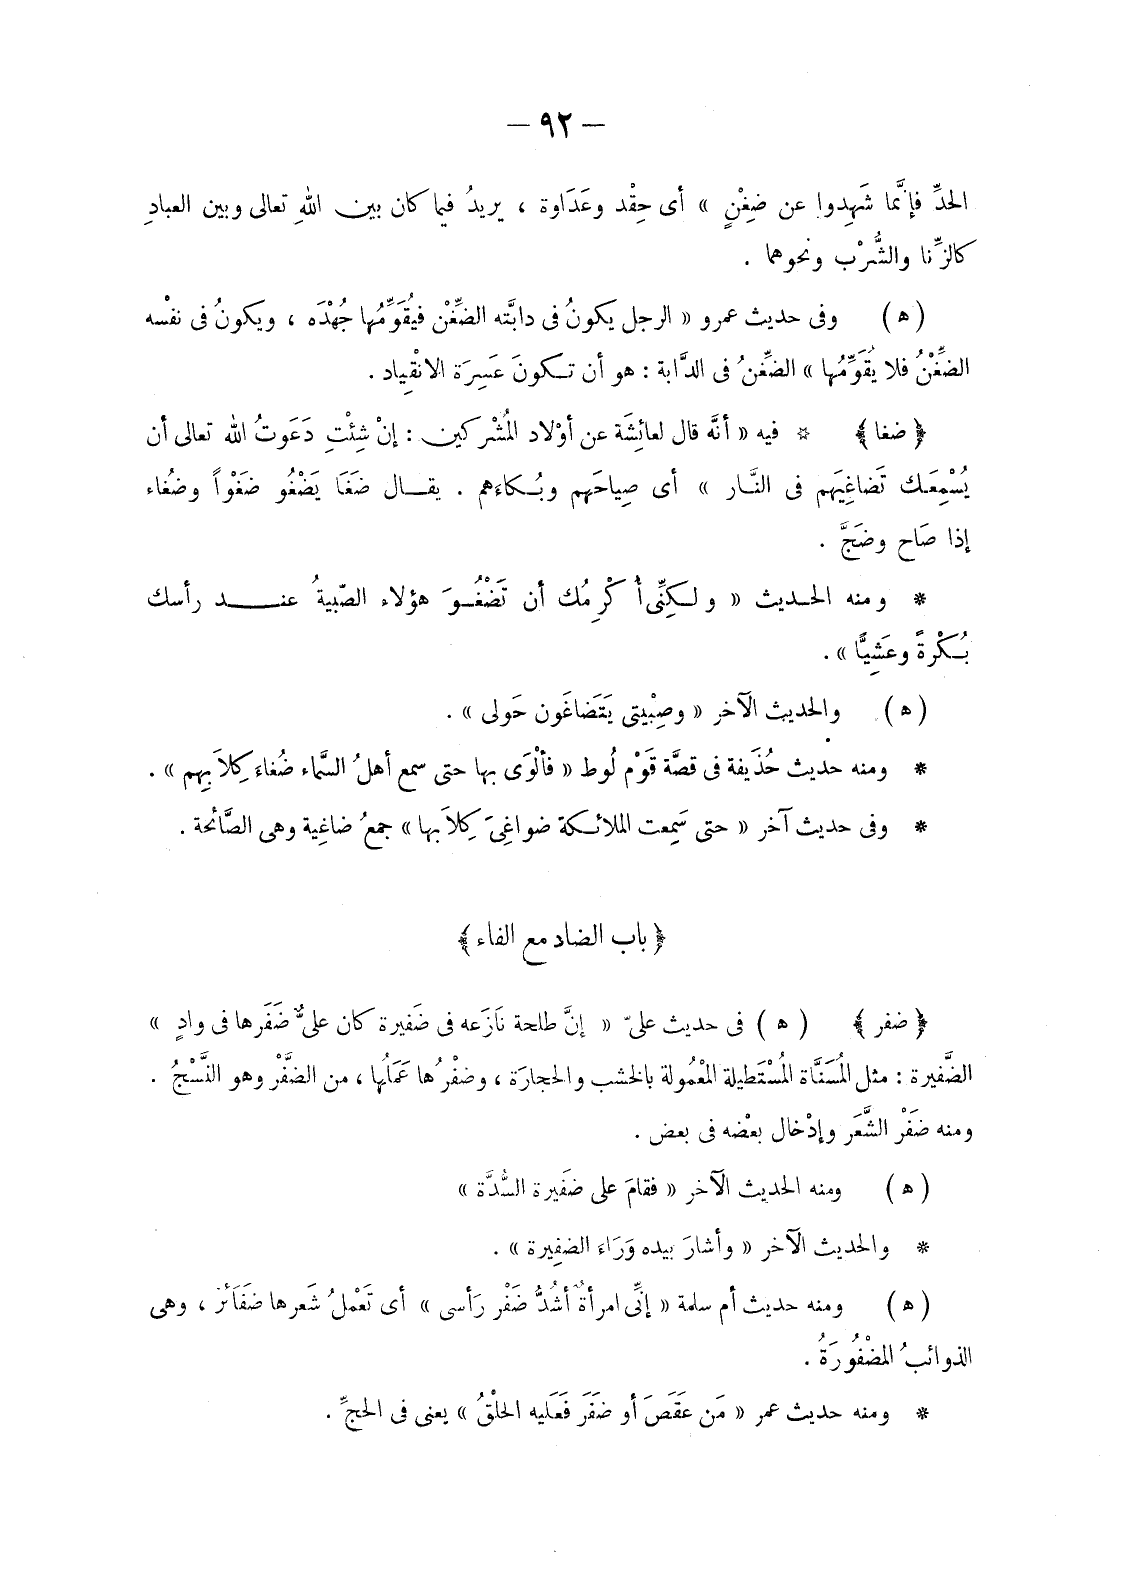 — ٩٢ —
الحدِّ فإنَّما شَهِدوا عن ضِغْنٍ » أى حِقْد وعَدَاوة ، يريدُ فيما كان بين اللهِ تعالى وبين العبادِ
كالزِّنا والشُّرْب ونحوهما .
( ه‍ ) وفى حديث عمرو « الرجل يكونُ فى دابَّته الضِّغْن فيُقَوِّمُها جُهْدَه ، ويكونُ فى نفْسه
الضِّغْنُ فلا يُقَوِّمُها » الضِّغْنُ فى الدَّابة : هو أن تكونَ عَسِرَة الانْقِياد .
﴿ ضغا ﴾ ☆ فيه « أنَّه قال لعائِشَة عن أوْلاد المُشْركين : إنْ شِئْتِ دَعَوتُ الله تعالى أن
يُسْمِعَك تَضاغِيَهم فى النَّار » أى صِياحَهم وبُكاءَهم . يقال ضَغَا يَضْغُو ضَغْواً وضُغاء
إذا صَاح وضَجَّ .
* ومنه الحديث « ولكِنِّى أُكْرِمُك أن تَضْغُوَ هؤلاء الصّبيةُ عند رأسك
بُكْرةً وعَشِيًّا » .
( ه‍ ) والحديث الآخر « وصِبْيتى يَتَضاغَون حَولى » .
* ومنه حديث حُذَيفة فى قصَّة قَوْم لُوط « فألْوَى بها حتى سمع أهلُ السَّماء ضُغاءَ كِلاَبِهم » .
* وفى حديث آخر « حتى سَمِعت الملائكة ضواغِىَ كِلاَبها » جمعُ ضاغِية وهى الصَّائحة .
﴿ باب الضاد مع الفاء ﴾
﴿ ضفر ﴾ ( ه‍ ) فى حديث علىّ « إنَّ طلحة نَازَعه فى ضَفيرة كان علىٌّ ضَفَرها فى وادٍ »
الضَّفيرة : مثل المُسَنَّاة المُسْتَطيلة المَعْمولة بالخشب والحجارَة ، وضفْرُها عَمَلُها ، من الضَّفْر وهو النَّسْجُ .
ومنه ضَفْر الشَّعَر وإدْخال بعْضه فى بعض .
( ه‍ ) ومنه الحديث الآخر « فقامَ على ضَفَيرة السُّدَّة »
* والحديث الآخر « وأشارَ بيده وَرَاءَ الضفِيرة » .
( ه‍ ) ومنه حديث أم سلمة « إنِّى امرأةٌ أشُدُّ ضَفْر رَأسى » أى تَعْملُ شَعرها ضَفَائر ، وهى
الذوائبُ المضْفُورَةُ .
* ومنه حديث عمر « مَن عَقَصَ أو ضَفَرَ فَعَليه الحلْقُ » يعنى فى الحجِّ .